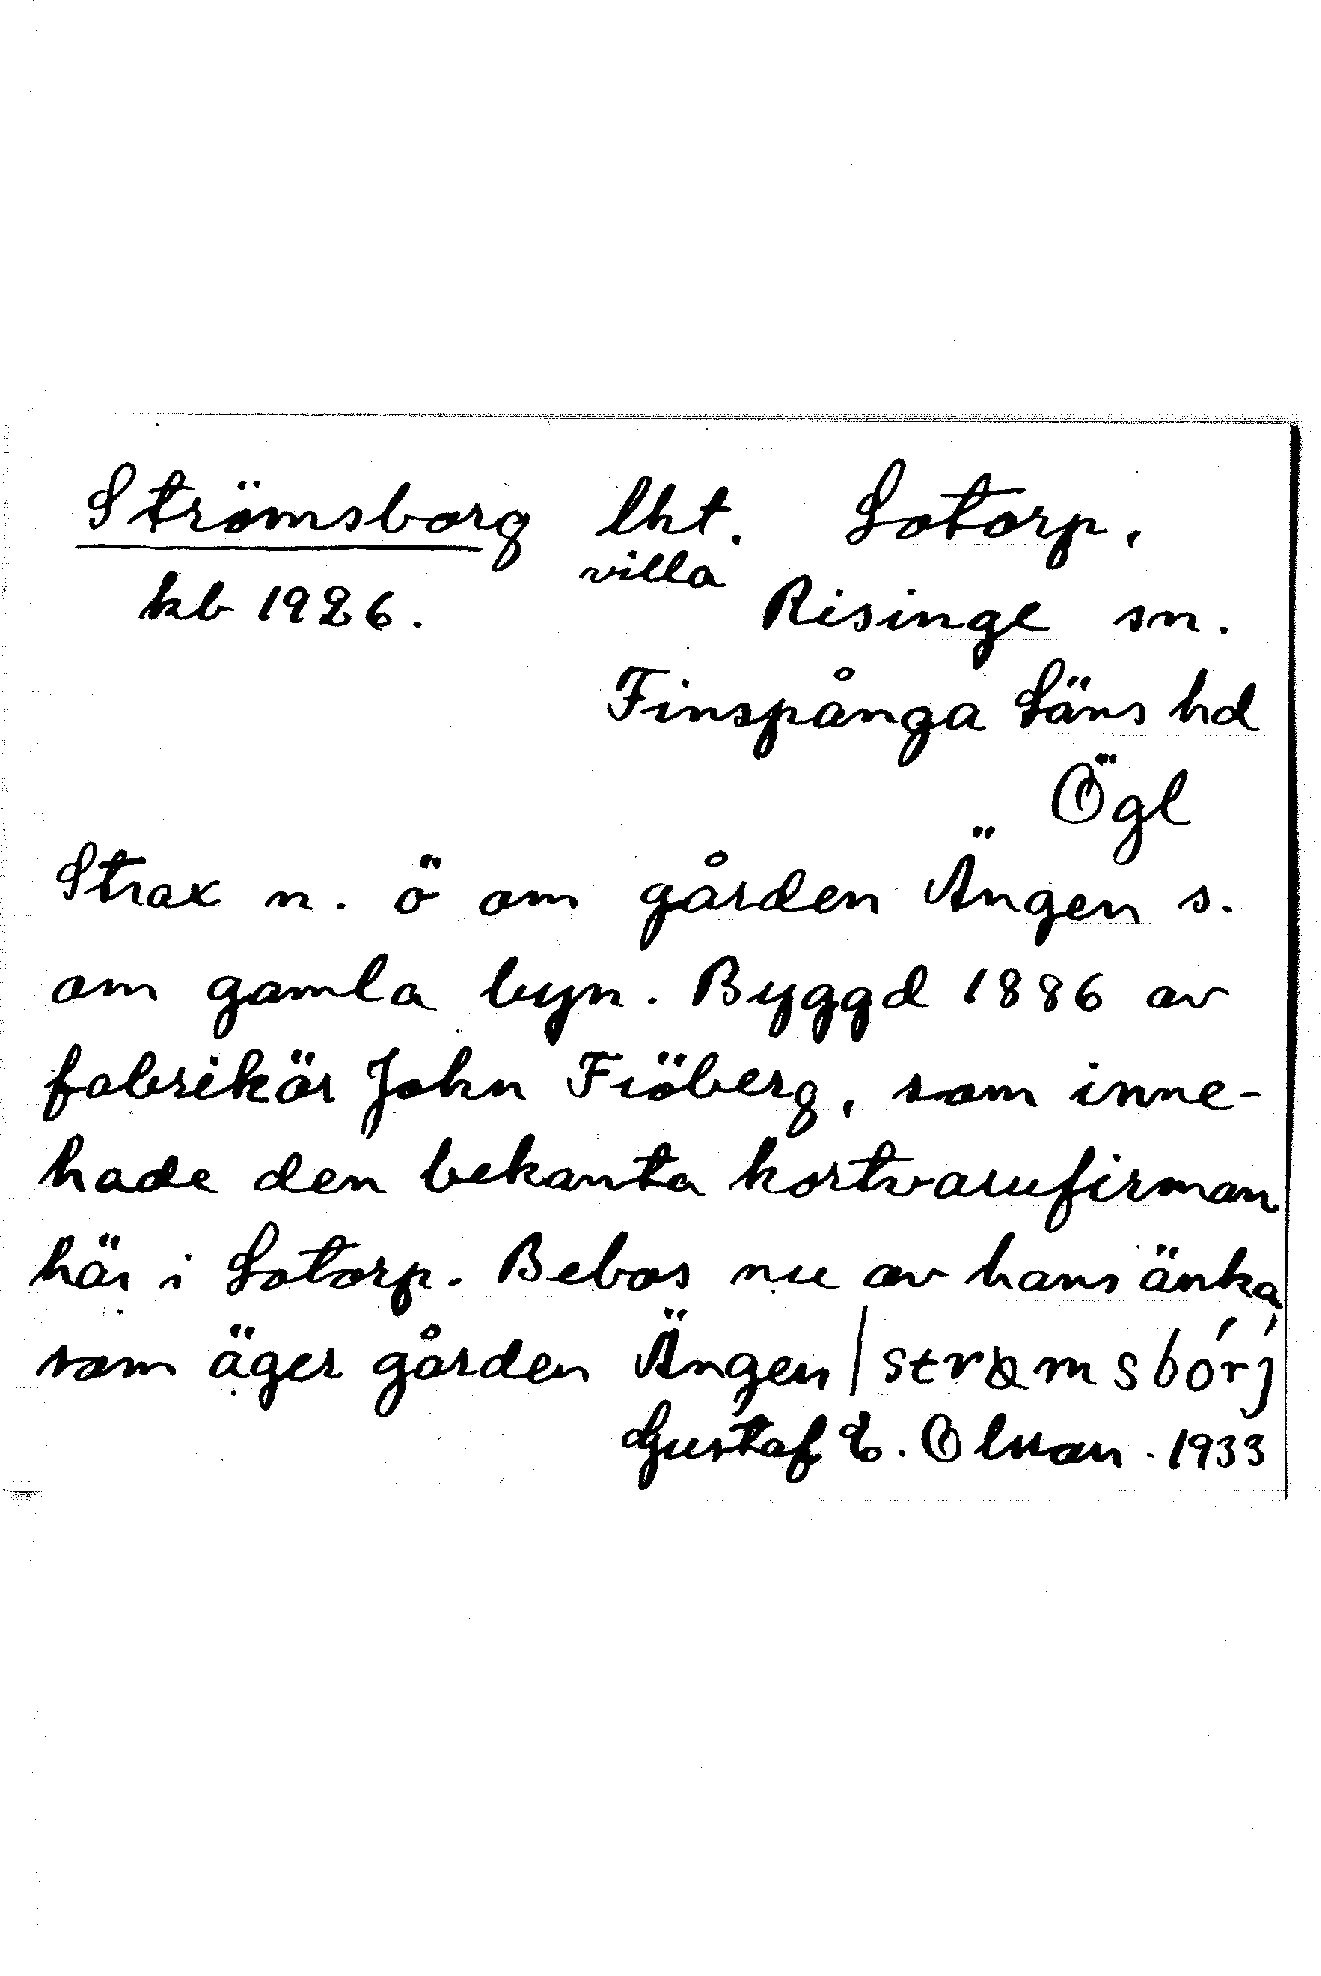 Strömsborg lht. Lotorp,
villa
kb 1926. Risinge sn.
Finspånga Läns hd
Ögl
Strax n. ö om gården Ängen s.
om gamla byn. Byggd 1886 av
fabrikör John Fröberg, som inne-
hade den bekanta kortvarufirman
här i Lotorp. Bebos nu av hans änka
som äger gården Ängen / strømsbórj
Gustaf E. Olsson. 1933